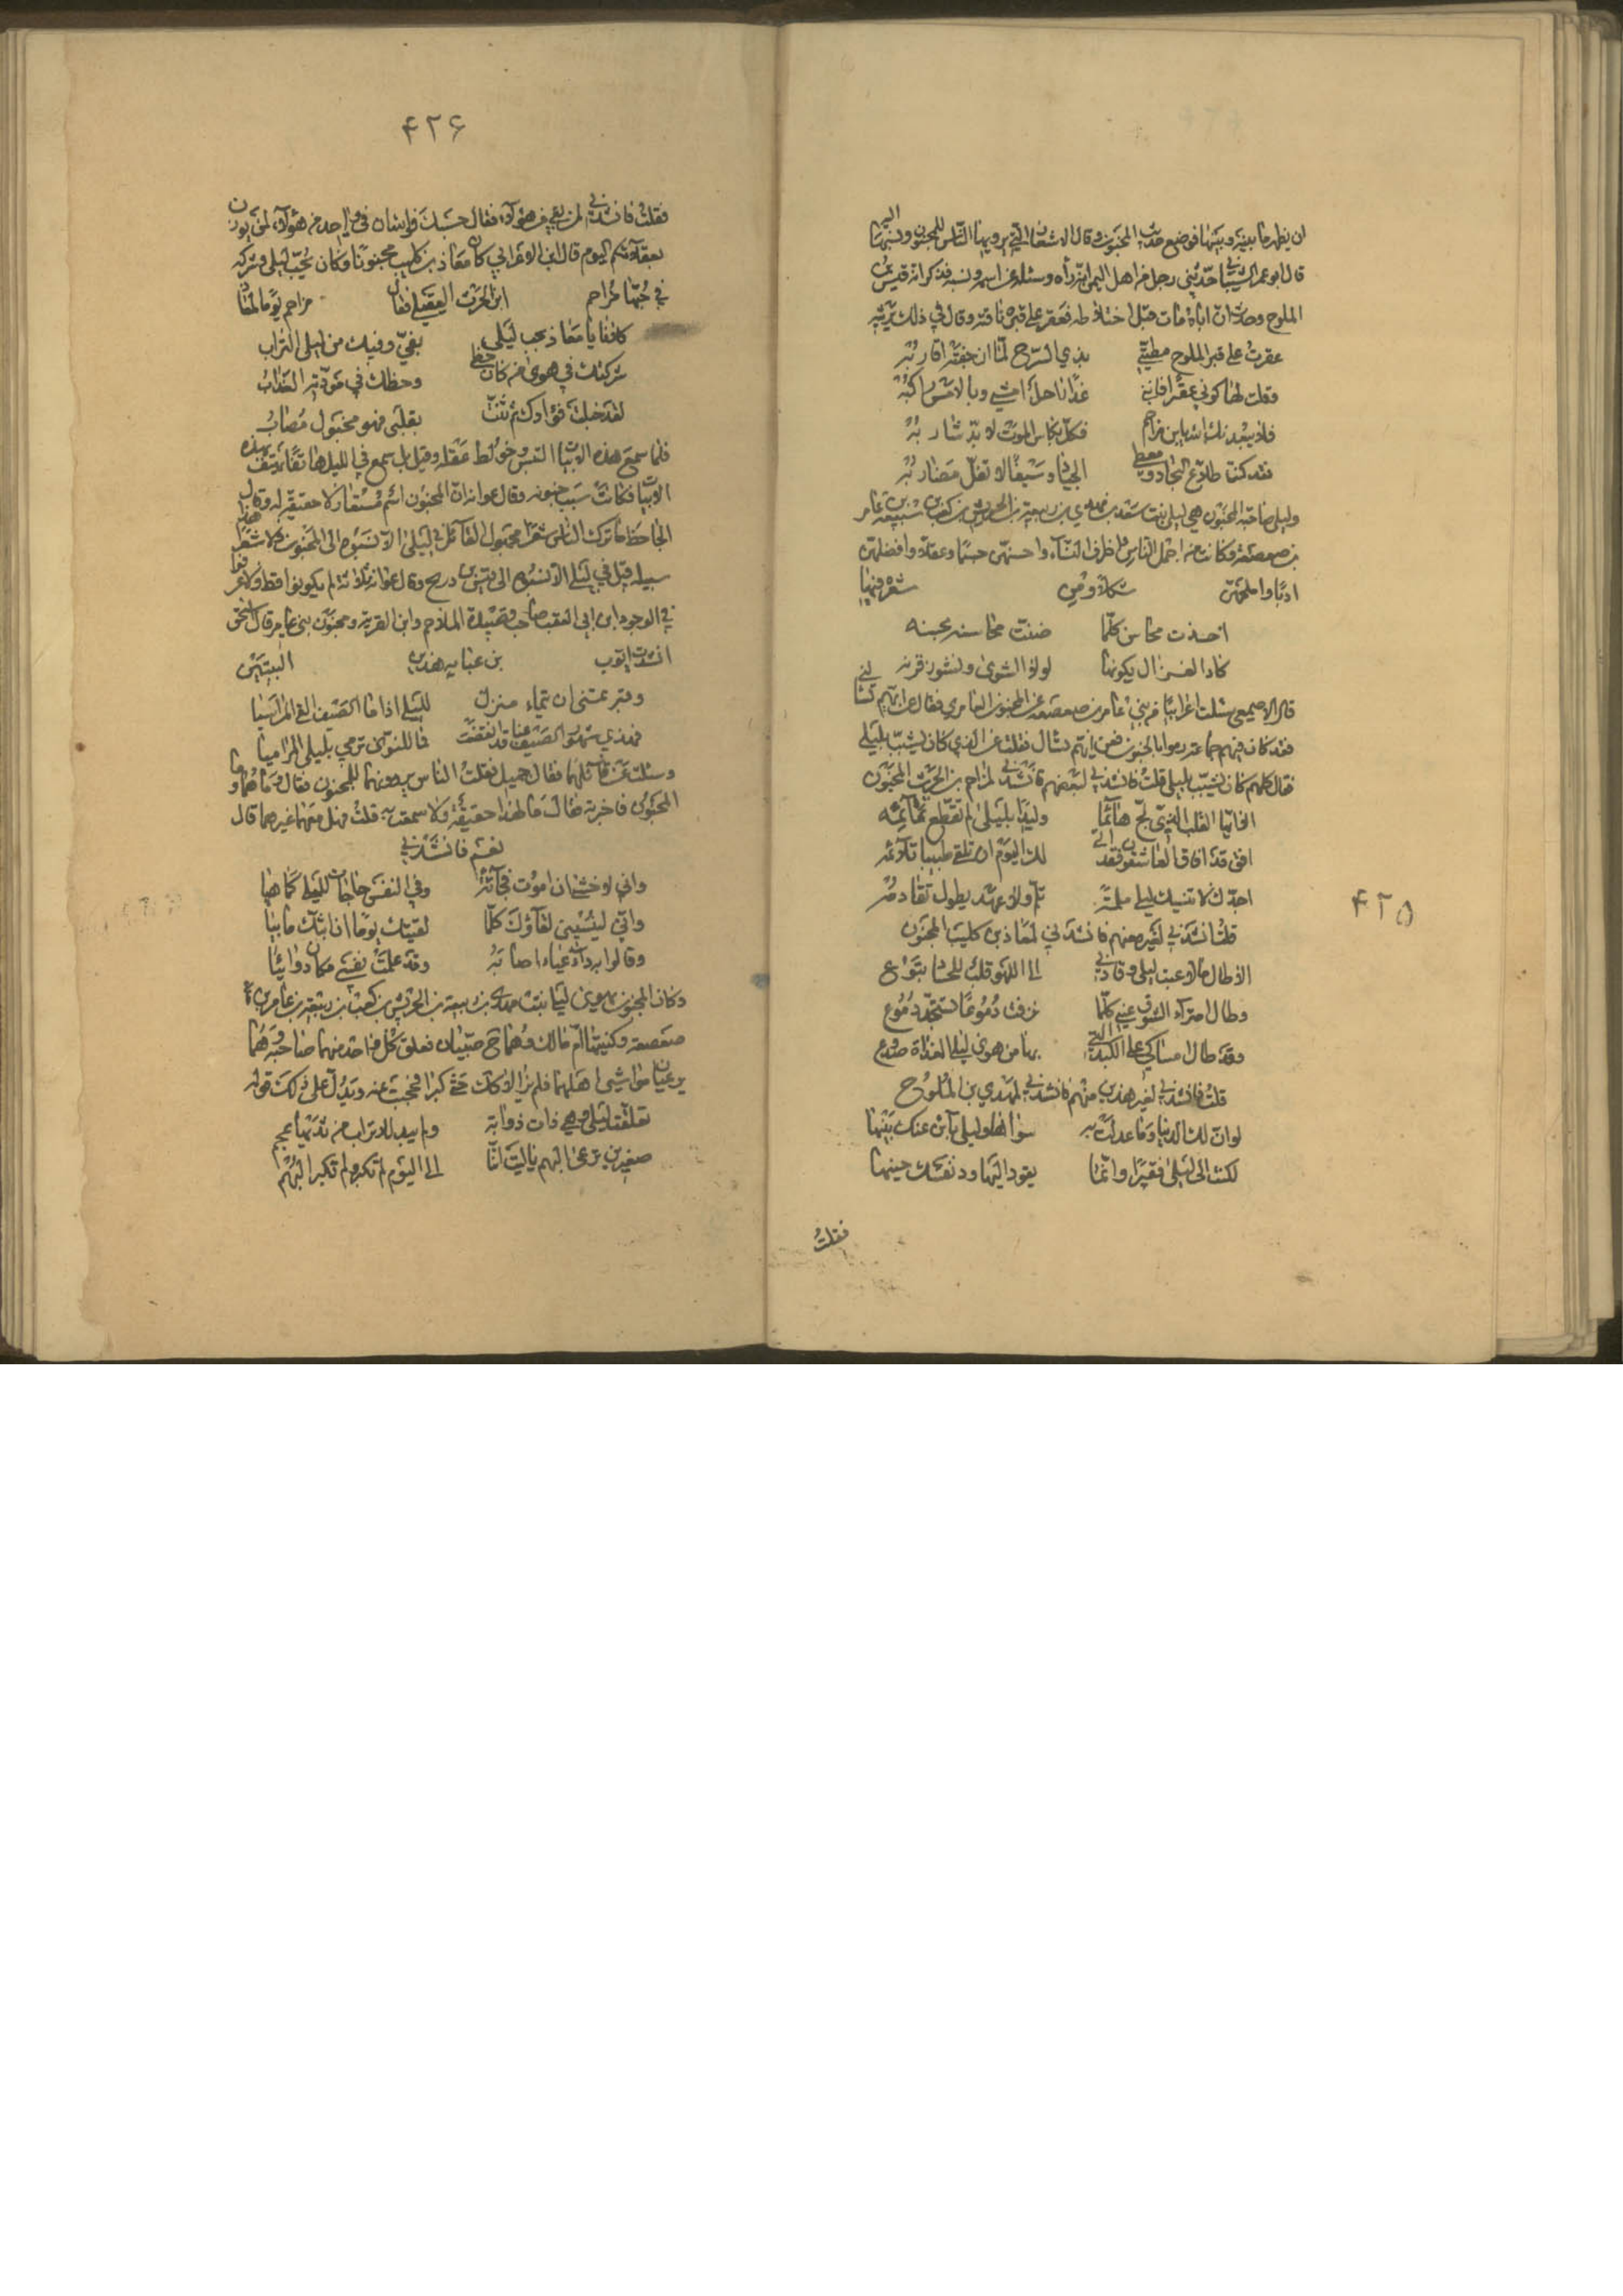 ان يظهر ما بينه وبينها فوضع حديث المجنون وقال الاشعار التي يرويها الناس للمجنون ونسبها اليه
قال ابو عمر الشيباني حدثني رجل من اهل اليمن انه رأه وسئله عن اسمه ونسبه فذكر انه قيس بن
الملوح وحدث ان اباه مات قبل اختلاطه فعقر على قبره ناقته وقال في ذلك يرثيه
عقرت على قبر الملوح مطيتي بذي السرح لما ان جفته اقاربه
وقلت لها كوني عقيرا فانني غدا راحل امشي وبالامس راكبه
فلا يبعدنك الله يا بن مزاحم فكل بكاس الموت لا بد شاربه
فقد كنت طلاع النجاد ومعطى الجياد وسيفا لا تفل مضاربه
وليلى صاحبة المجنون هي ليلى بنت سعد بن مهدي بن ربيعة بن الحريش بن كعب بن ربيعة بن عامر
بن صعصعة وكانت من اجمل الناس واظرف النساء واحسنهن جسما وعقلا وافضلهن
ادبا واملحهن شكلا وفيها شعره فيها
اخذت محاسن كلما ضنت محاسنه بحسنه
كاد الغزال يكونها لولا الشوى ونشوز قرنه
قال الاصمعي سئلت اعرابيا من بني عامر بن صعصعة عن المجنون العامري فقال عن ايهم تسئلني
فقد كان فينا جماعة رموا بالجنون فعن ايهم تسال فقلت عن الذي كان يشبب بليلى
فقال كلهم كان يشبب بليلى قلت فانشدني لبعضهم فانشدني لمزاحم بن الحرث المجنون
الا ايها القلب الذي لج هائما وليدا بليلى لم تقطع تمائمه
افق قد افاق العاشقون وقد انى لك اليوم ان تلقى طبيبا تلائمه
اجدك لا تنسيك ليلى ملمة تلم ولا عهد يطول تقادمه
قلت انشدني لغيره منهم فانشدني لمعاذ بن كليب المجنون
الا طال ما لاعبت ليلى وقادني الى اللهو قلب للحسان تبوع
وطال امتراء الشوق عيني كلما نزفت دموعا تستجد دموع
وقد طال امساكي على الكبد التي بها من هوى ليلى الغداة صدوع
قلت فانشدني لغير هذين منهم فانشدني لمهدي بن الملوح
لو ان لك الدنيا وما عدلت به سواها وليلى بائن عنك بينها
لكنت الى ليلى فقيرا وانما يقود اليها ود نفسك حينها
فقلت
۴۲۵
۴۲۶
فقلت فانشدني لمن بقي من هؤلاء فقال حسبك فوالله ان في واحد من هؤلاء لمن يوزن
بعقلائكم اليوم قال ابن الاعرابي كان معاذ بن كليب مجنونا وكان يحب ليلى وشركه
في حبها مزاحم ابن الحرث العقيلي فقال مزاحم يوما لمعاذ
كلانا يا معاذ بحب ليلى بفي وفيك من ليلى التراب
شركتك في هوى من كان حظي وحظك في مودته العذاب
لقد خبلت فؤادك ثم ثنت بقلبي فهو مخبول مصاب
فلما سمع هذه الابيات التبس وخولط عقله وقيل بل سمع في الليل هاتفا يهتف بهذه
الابيات فكانت سبب جنونه وقال عوانه ان المجنون اسم مستعار لا حقيقة له وقال
الجاحظ ما ترك الناس شعرا مجهول القائل في ليلى الا نسبوه الى المجنون ولا شعرا هذا
سبيله قيل في لبنى الا نسبوه الى قيس بن ذريح وقال عوانه ثلاثة لم يكونوا قط ولا عرفوا
في الوجود ابن ابي العقب صاحب قصيدة الملاحم وابن القرية ومجنون بني عامر قال اسحق
انشدت ايوب بن عبابه هذين البيتين
وخبرتماني ان تيماء منزل لليلى اذا ما الصيف القى المراسيا
فهذي شهور الصيف عنا قد انقضت فما للنوى ترمي بليلى المراميا
وسئلته عن قائلهما فقال جميل فقلت الناس يروونهما للمجنون فقال وما هو وما
المجنون فاخبرته فقال ما لهذا حقيقة ولا سمعت به قلت فهل معهما غيرهما قال
نعم فانشدني
واني لاخشى ان اموت فجائة وفي النفس حاجات لليلى كما هيا
واني لينسيني لقاؤك كلما لقيتك يوما ان ابثك ما بيا
وقالوا به داء عياء اصابه وقد علمت نفسي مكان دوائيا
وكان المجنون يهوى ليلى بنت مهدي بن ربيعة بن الحريش بن كعب بن ربيعة بن عامر بن
صعصعة وكنيتها ام مالك وهما ح صبيان فعلق كل واحد منهما صاحبه وهما
يرعيان مواشي اهلهما فلم يزالا كذلك حتى كبرا فحجبت عنه ويدل على ذلك قوله
تعلقت ليلى وهي ذات ذوابة ولم يبد للاتراب من ثديها حجم
صغيرين نرعى البهم يا ليت اننا الى اليوم لم نكبر ولم تكبر البهم